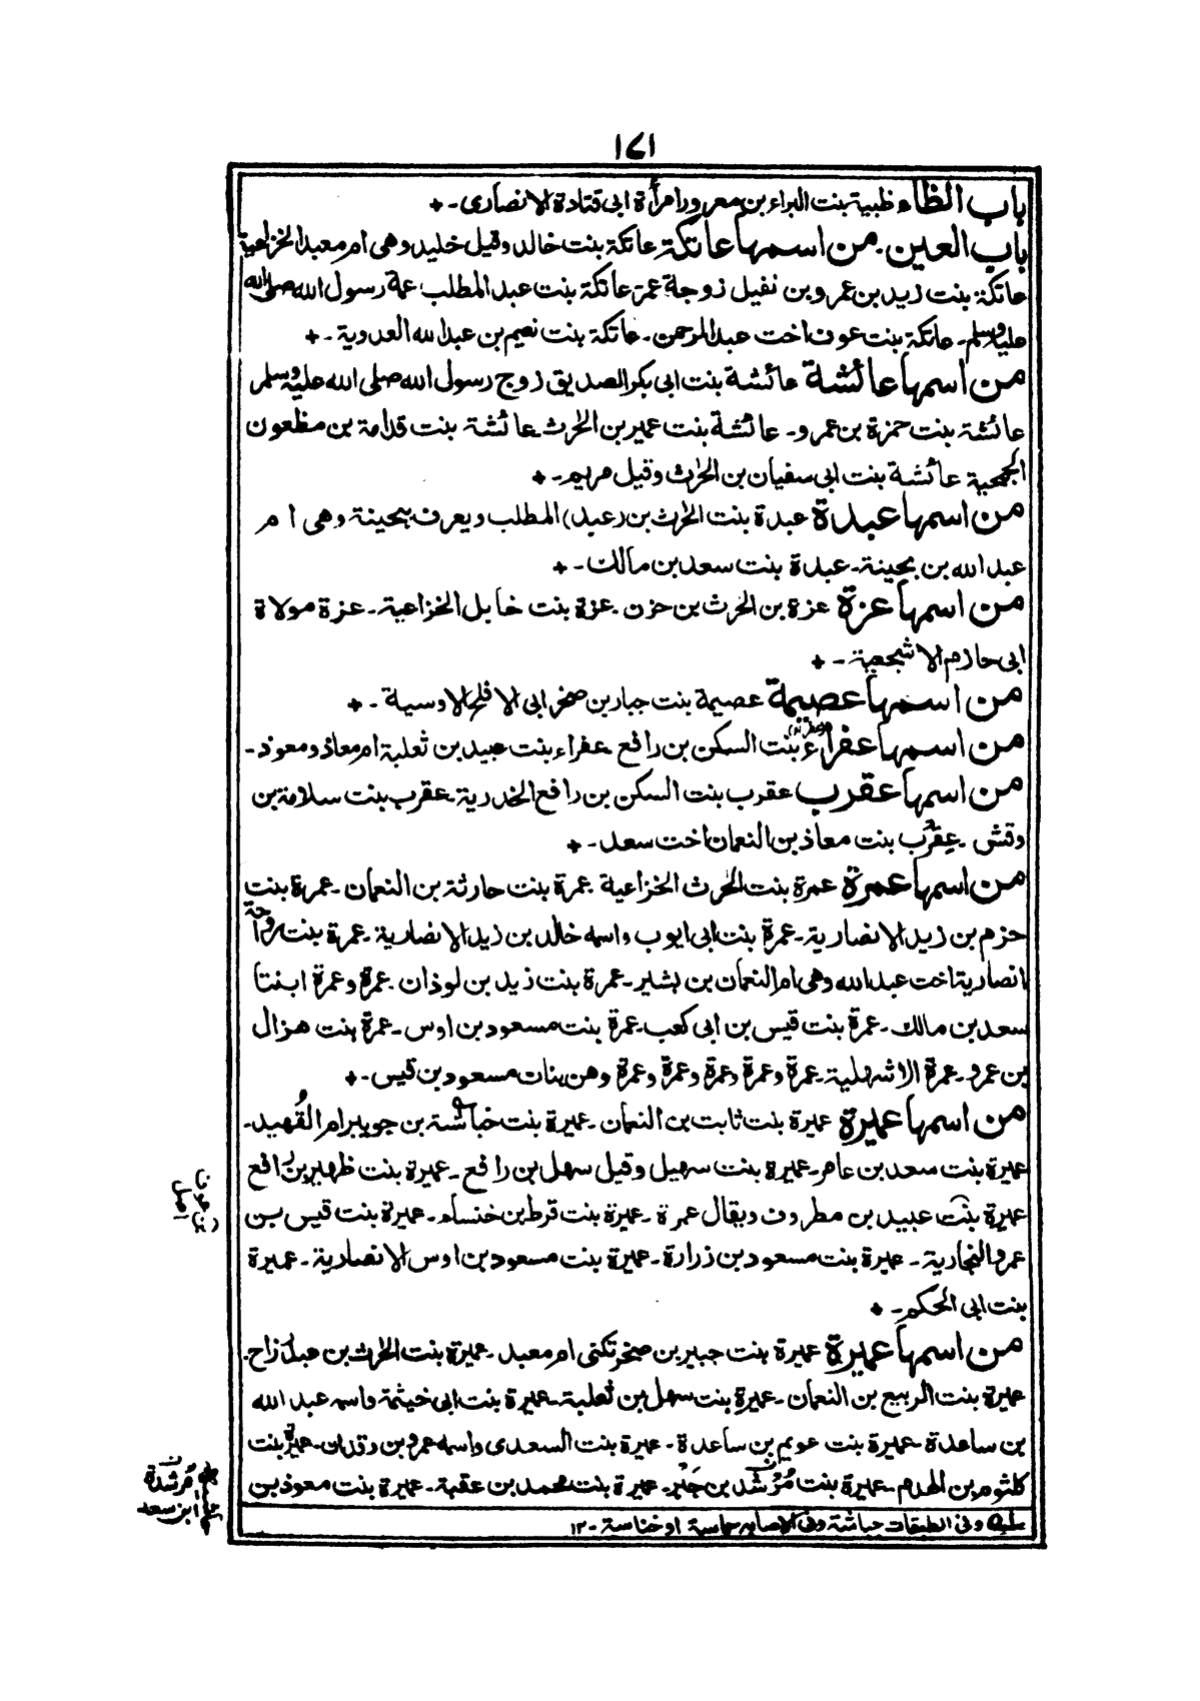 ١٧١
باب الظاء ظبية بنت البراء بن معرور امرأة ابى قتادة الانصارى ـ ٭
باب العين ـ من اسمها عاتكة عاتكة بنت خالد وقيل خليد وهى ام معبد الخزاعية
عاتكة بنت زيد بن عمرو بن نفيل زوجة عمر عاتكة بنت عبد المطلب عمة رسول الله صلى الله
عليه وسلم ـ عاتكة بنت عوف اخت عبد الرحمن ـ عاتكة بنت نعيم بن عبد الله العدوية ـ ٭
من اسمها عائشة عائشة بنت ابى بكر الصديق زوج رسول الله صلى الله عليه وسلم
عائشة بنت حمزة بن عمرو ـ عائشة بنت عمير بن الحرث عائشة بنت قدامة بن مظعون
الجمحية عائشة بنت ابى سفيان بن الحرث وقيل مريم ـ ٭
من اسمها عبدة عبدة بنت الحرث بن (عبد) المطلب ويعرف ببحينة وهى ام
عبد الله بن بحينة ـ عبدة بنت سعد بن مالك ـ ٭
من اسمها عزة عزة بن الحرث بن حزن ـ عزة بنت خابل الخزاعية ـ عزة مولاة
ابى حازم الاشجعية ـ ٭
من اسمها عصيمة عصيمة بنت جبار بن صخر ابى الافلح الاوسية ـ ٭
من اسمها عفراء بنت السكن بن رافع عفراء بنت عبيد بن ثعلبة ام معاذ ومعوذ ـ
من اسمها عقرب عقرب بنت السكن بن رافع الخدرية ـ عقرب بنت سلامة بن
وقش ـ عقرب بنت معاذ بن النعمان اخت سعد ـ ٭
من اسمها عمرة عمرة بنت الحرث الخزاعية عمرة بنت حارثة بن النعمان ـ عمرة بنت
حزم بن زيد الانصارية ـ عمرة بنت ابى ايوب واسمه خالد بن زيد الانصارية ـ عمرة بنت رواحة
انصارية اخت عبد الله وهى ام النعمان بن بشير ـ عمرة بنت زيد بن لوذان ـ عمرة وعمرة ابنتا
سعد بن مالك ـ عمرة بنت قيس بن ابى كعب عمرة بنت مسعود بن اوس ـ عمرة بنت هزال
بن عمرو ـ عمرة الاشهلية ـ عمرة وعمرة وعمرة وعمرة وعمرة وهن بنات مسعود بن قيس ـ ٭
من اسمها عميرة عميرة بنت ثابت بن النعمان ـ عميرة بنت خباشة بن جويبر ام القُهيد ـ
عميرة بنت سعد بن عامر ـ عميرة بنت سهيل وقيل سهل بن رافع ـ عميرة بنت ظهير بن رافع
عميرة بنت عبيد بن مطروف ويقال عمرة ـ عميرة بنت قرط بن خنساء ـ عميرة بنت قيس بن
عمرو النجارية ـ عميرة بنت مسعود بن زرارة ـ عميرة بنت مسعود بن اوس الانصارية ـ عميرة
بنت ابى الحكم ـ ٭
من اسمها عميرة عميرة بنت جبير بن صخر تكنى ام معبد ـ عميرة بنت الحرث بن عبد رزاح ـ
عميرة بنت الربيع بن النعمان ـ عميرة بنت سهل بن ثعلبة ـ عميرة بنت ابى خيثمة واسمه عبد الله
بن ساعدة ـ عميرة بنت عويم بن ساعدة ـ عميرة بنت السعدى واسمه عمرو بن وقدان ـ عميرة بنت
كلثوم بن الهدم ـ عميرة بنت مُرْشد بن جَبر ـ عميرة بنت محمد بن عقبة ـ عميرة بنت معوذ بن
وفى الطبقات حباشة وفى الاصابه حماسة او خناسة ـ ١٢
بن عوف
اصل
مرشدة
ابن سعد